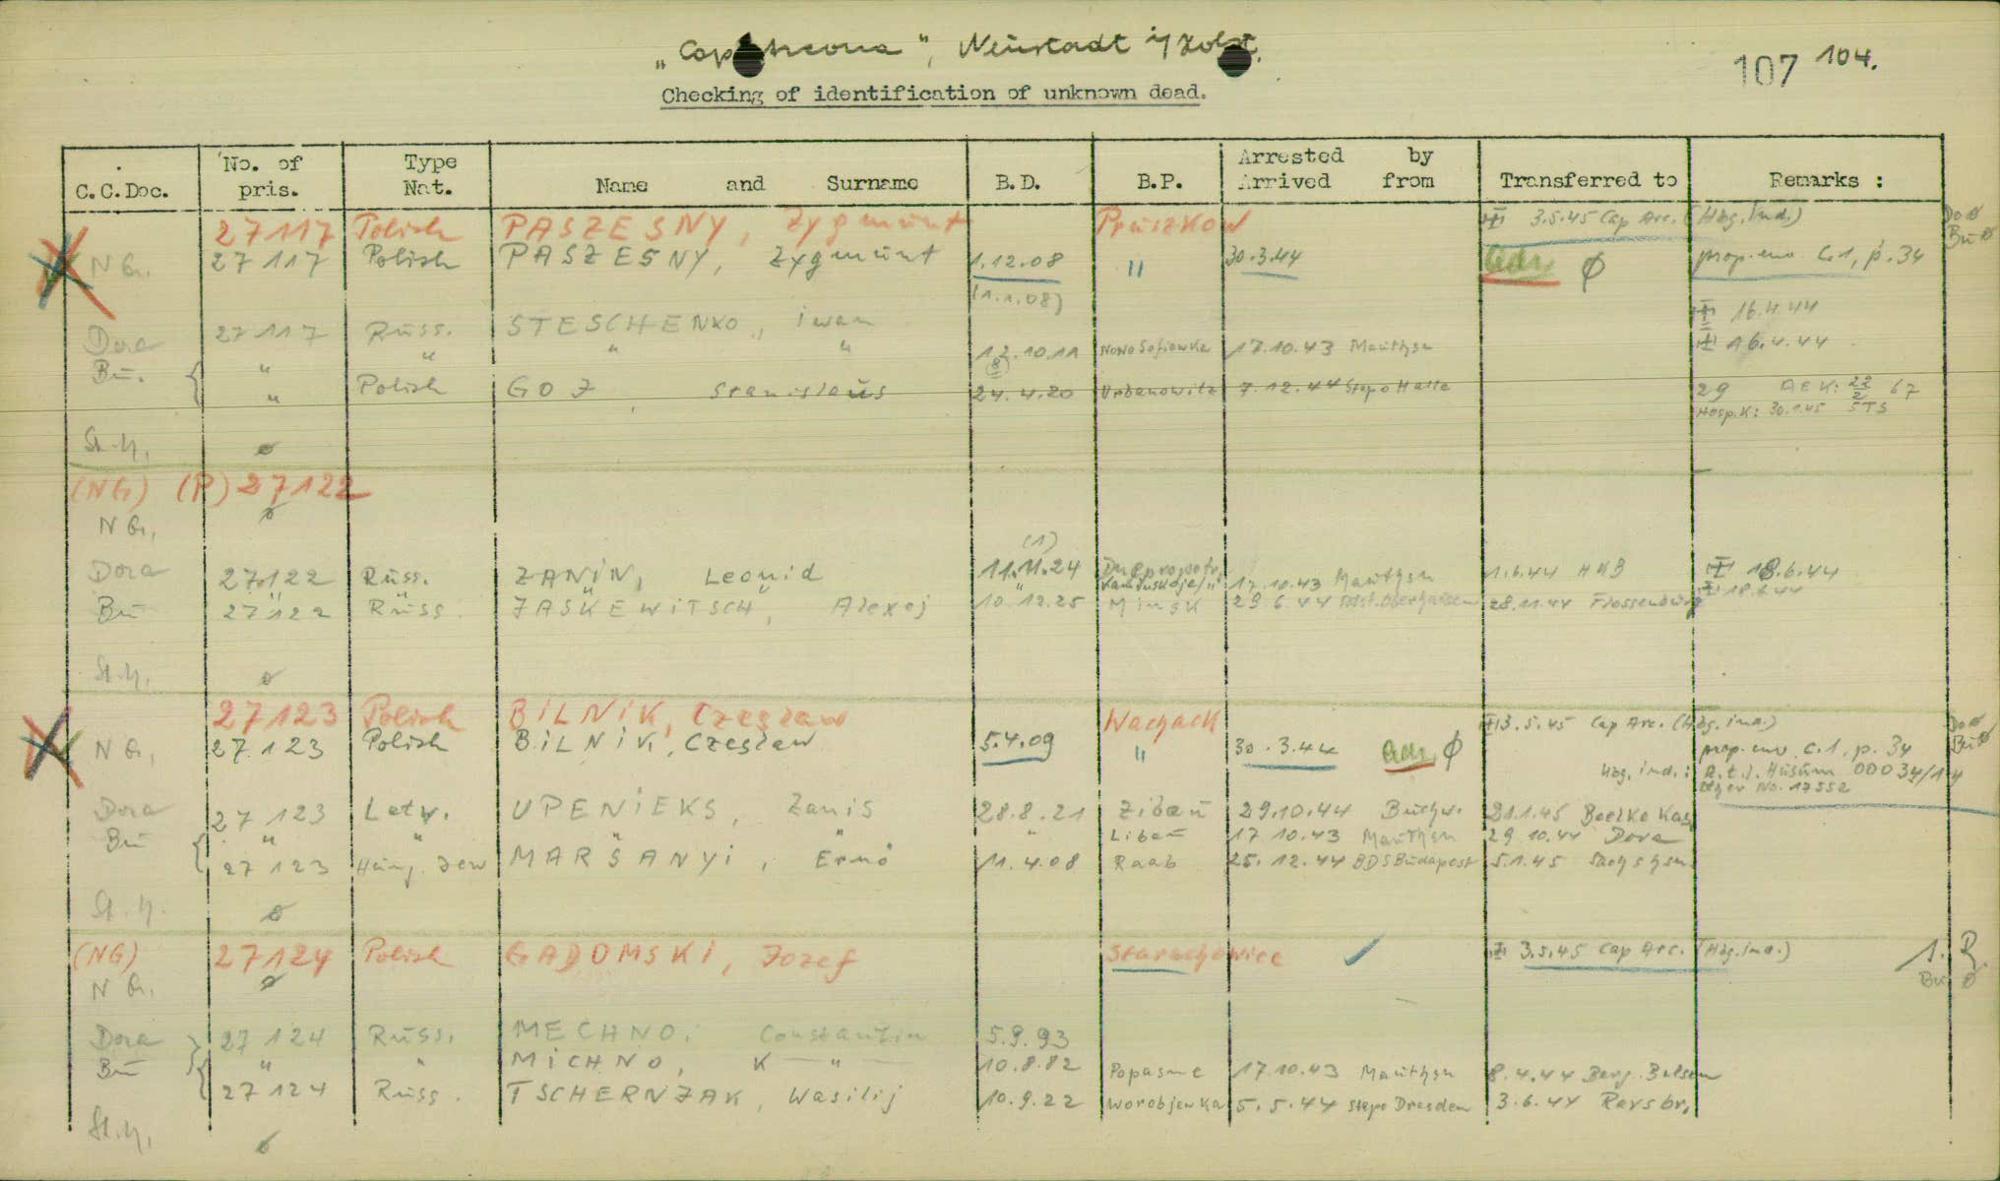 "Cap Arcona", Neustadt i/Holst.
107 104.
Checking of identification of unknown dead.
C.C.Doc. No. of pris. Type Nat. Name and Surname B.D. B.P. Arrested by Arrived from Transferred to Remarks :
27117 Polish PASZESNY, Zygmunt Pruszkow 3.5.45 Cap Arc. (Hbg. ind.)
N G. 27117 Polish PASZESNY, Zygmunt 1.12.08 " 30.3.44 ø prop. env. C.1, p. 34
(1.1.08)
Dora 27117 Russ. STESCHENKO, iwan 16.4.44
Bu. " " " " 12.10.11 NowoSofiewka 17.10.43 Mauthsn 16.4.44
(8)
" Polish GOJ, Stanislaus 24.4.20 Urbanowitz 7.12.44 Stapo Halle 29 AEK: 22/2 67
Hosp.K: 30.1.45 STS
St.H. ø
(NG) (P) 27122
N G. ø
(1)
Dora 27122 Russ. ZANIN, Leonid 11.11.24 17.10.43 Mauthsn 1.6.44 HKB 18.6.44
Bu 27122 Russ. JASKEWITSCH, Alexej 10.12.25 Minsk 29.6.44 28.11.44 Flossenbürg 18.6.44
St.H. ø
27123 Polish BILNIK, Czeslaw Wachack 3.5.45 Cap Arc. (Hbg. ind.)
N G. 27123 Polish BILNIK, Czeslaw 5.4.09 " 30.3.44 ø prop. env. C.1, p. 34
Hbg. ind.: Husum
No. 17552
Dora 27123 Letv. UPENIEKS, Zanis 28.8.21 Zibau 29.10.44 Buchw. 21.1.45 Boelke Kas.
Bu " " " " " Libau 17.10.43 Mauthsn 29.10.44 Dora
27123 Hung. Jew MARSANYI, Ernö 11.4.08 Raab 25.12.44 BDS Budapest 5.1.45 Sachshsn
St.H. ø
(NG) 27124 Polish GADOMSKI, Jozef Starachowice 3.5.45 Cap Arc. (Hbg. ind.)
N G. ø Bu ø
Dora 27124 Russ. MECHNO, Constantin 5.9.93
Bu " " MICHNO, K — " — 10.8.82 Popasne 17.10.43 Mauthsn 8.4.44 Berg. Belsen
27124 Russ. TSCHERNJAK, Wasilij 10.9.22 Worobjewka 5.5.44 Stapo Dresden 3.6.44 Ravsbr.
St.H. ø